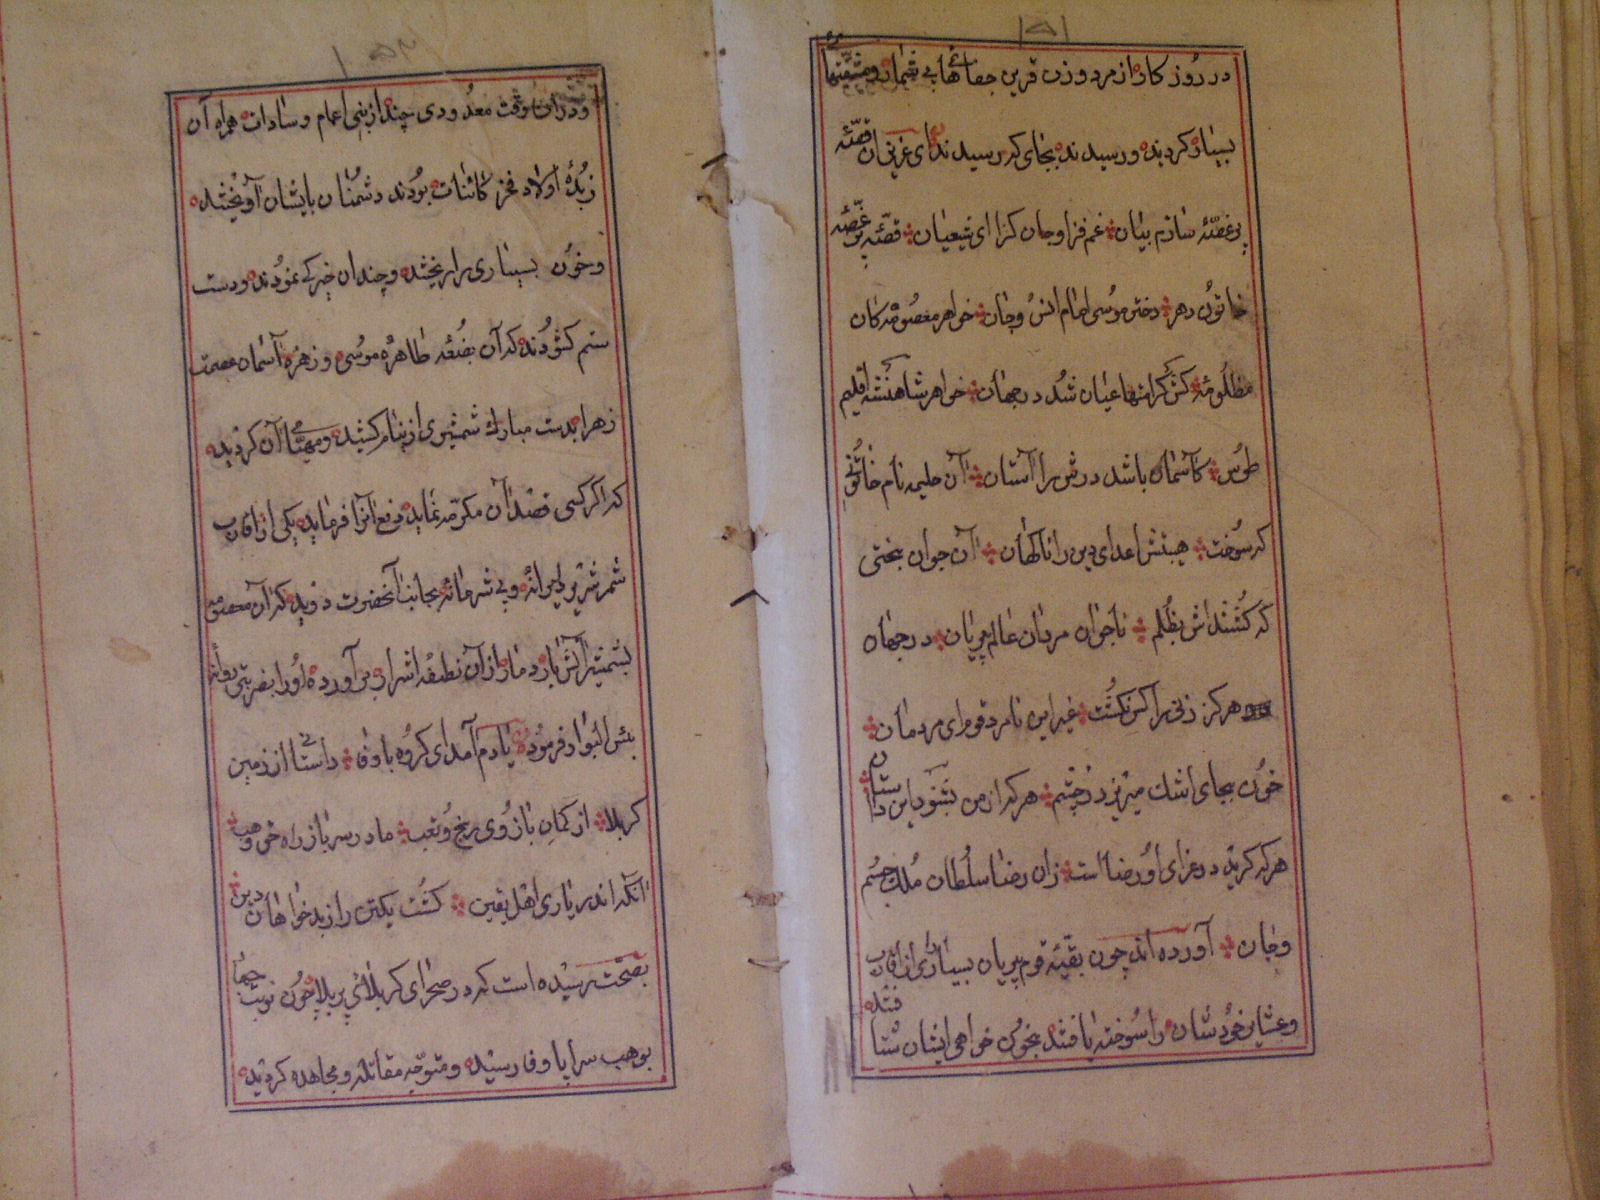 ۱۵۱
در روز کار از مرد و زن قرین جفاهٔا بی شیمان و متیقنها
بسیار کردیده و رسیدند بجای که رسیدند ای عزیزان قصّهٔ
پر غصّهٔ سازم بیان غم فزا و جان کزا ای شیعیان قصّهٔ پر غصّهٔ
خاتون دهر دختر موسی امام انس و جان خواهر معصومه کان
مظلومهٔ کش کرامتها عیان شد در جهان خواهر شاهنشه اقلیم
طوس کآسمان باشد درش را آستان آن حلیمه نام خاتونی
که سوخت هیبتش اعدای دین را ناکهان آن جوان بختی
که کشتنداش بظلم ناجوان مردان عالم پریان در جهان
هرکز زنی را کس نکشت غیر این نامرد قوم ای مردمان
خون بجای اشک میریزد ز چشم هرکه از من بشنود این داستان
هرکه کرید در عزای او رضا است زان رضا سلطان ملک جسم
و جان آورده‌اند چون بقیّهٔ قوم پریان بسیاری از اقارب
و عشایر خودشان را سوخته یافتند بخون خواهی ایشان شتافتند
۱۵۲
و در آن وقت معدودی چند از بنی اعمام و سادات همراه آن
زبدهٔ اولاد فخر کائنات بودند دشمنان بایشان آویختند
و خون بسیاری را ریختند و چندان خیرکی نمودند و دست
ستم کشودند که آن بضعهٔ طاهرهٔ موسی و زهرهٔ آسمان عصمت
زهرا بدست مبارک شمشیری از نیام کشیده و مهیّا آن کردید
که اکر کسی قصد آن مکرّمه نماید دفع آنرا فرماید یکی از اقارب
شمر شریر دلیرانه و بی شرمانه بجانب آنحضرت دوید که آن معصومه
بشمشیر آتش بار دمار از آن نطفهٔ اشرار برآورده او را بضربتی روانهٔ
بئس البوار فرمود یادم آمد ای کروه باوفا داستانی از زمین
کربلا از کمان بازوی رنج و تعب مادر سرباز راه حق وهب
آنکه اندر یاری اهل یقین کشت یکتن را ز بدخواهان دین
بصحّت رسیده است که در صحرای کربلائی پر بلا چون نوبت جهاد
بوهب سراپا وفا رسیده و متوجّه مقاتله و مجاهده کردید